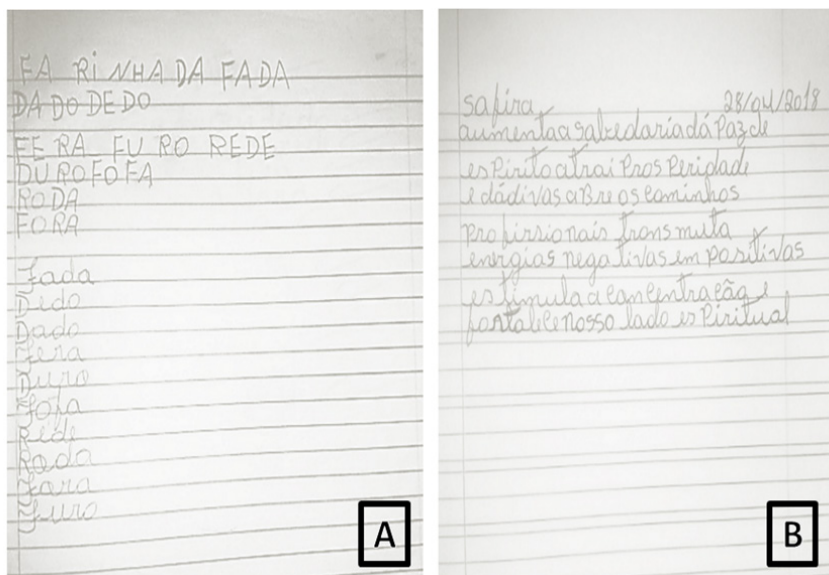 FA RiNHA DA FADA
DA DO DE DO
FE RA FU RO REDE
DURO FO FA
RODA
FORA
Fada
Dedo
Dado
Fera
Duro
Fofa
Rede
Roda
Fara
Furo
A
safira 28/04/2018
aumenta a sabedaria dá Paz de
es Pirito atrai Pros Peridade
e dádivas aBre os caminhos
profissionais transmuta
energias nega tivas em positivas
es timula a concentração e
fortalece nosso lado es Piritual
B